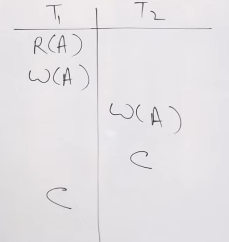 T₁ T₂
R(A)
W(A)
W(A)
C
C